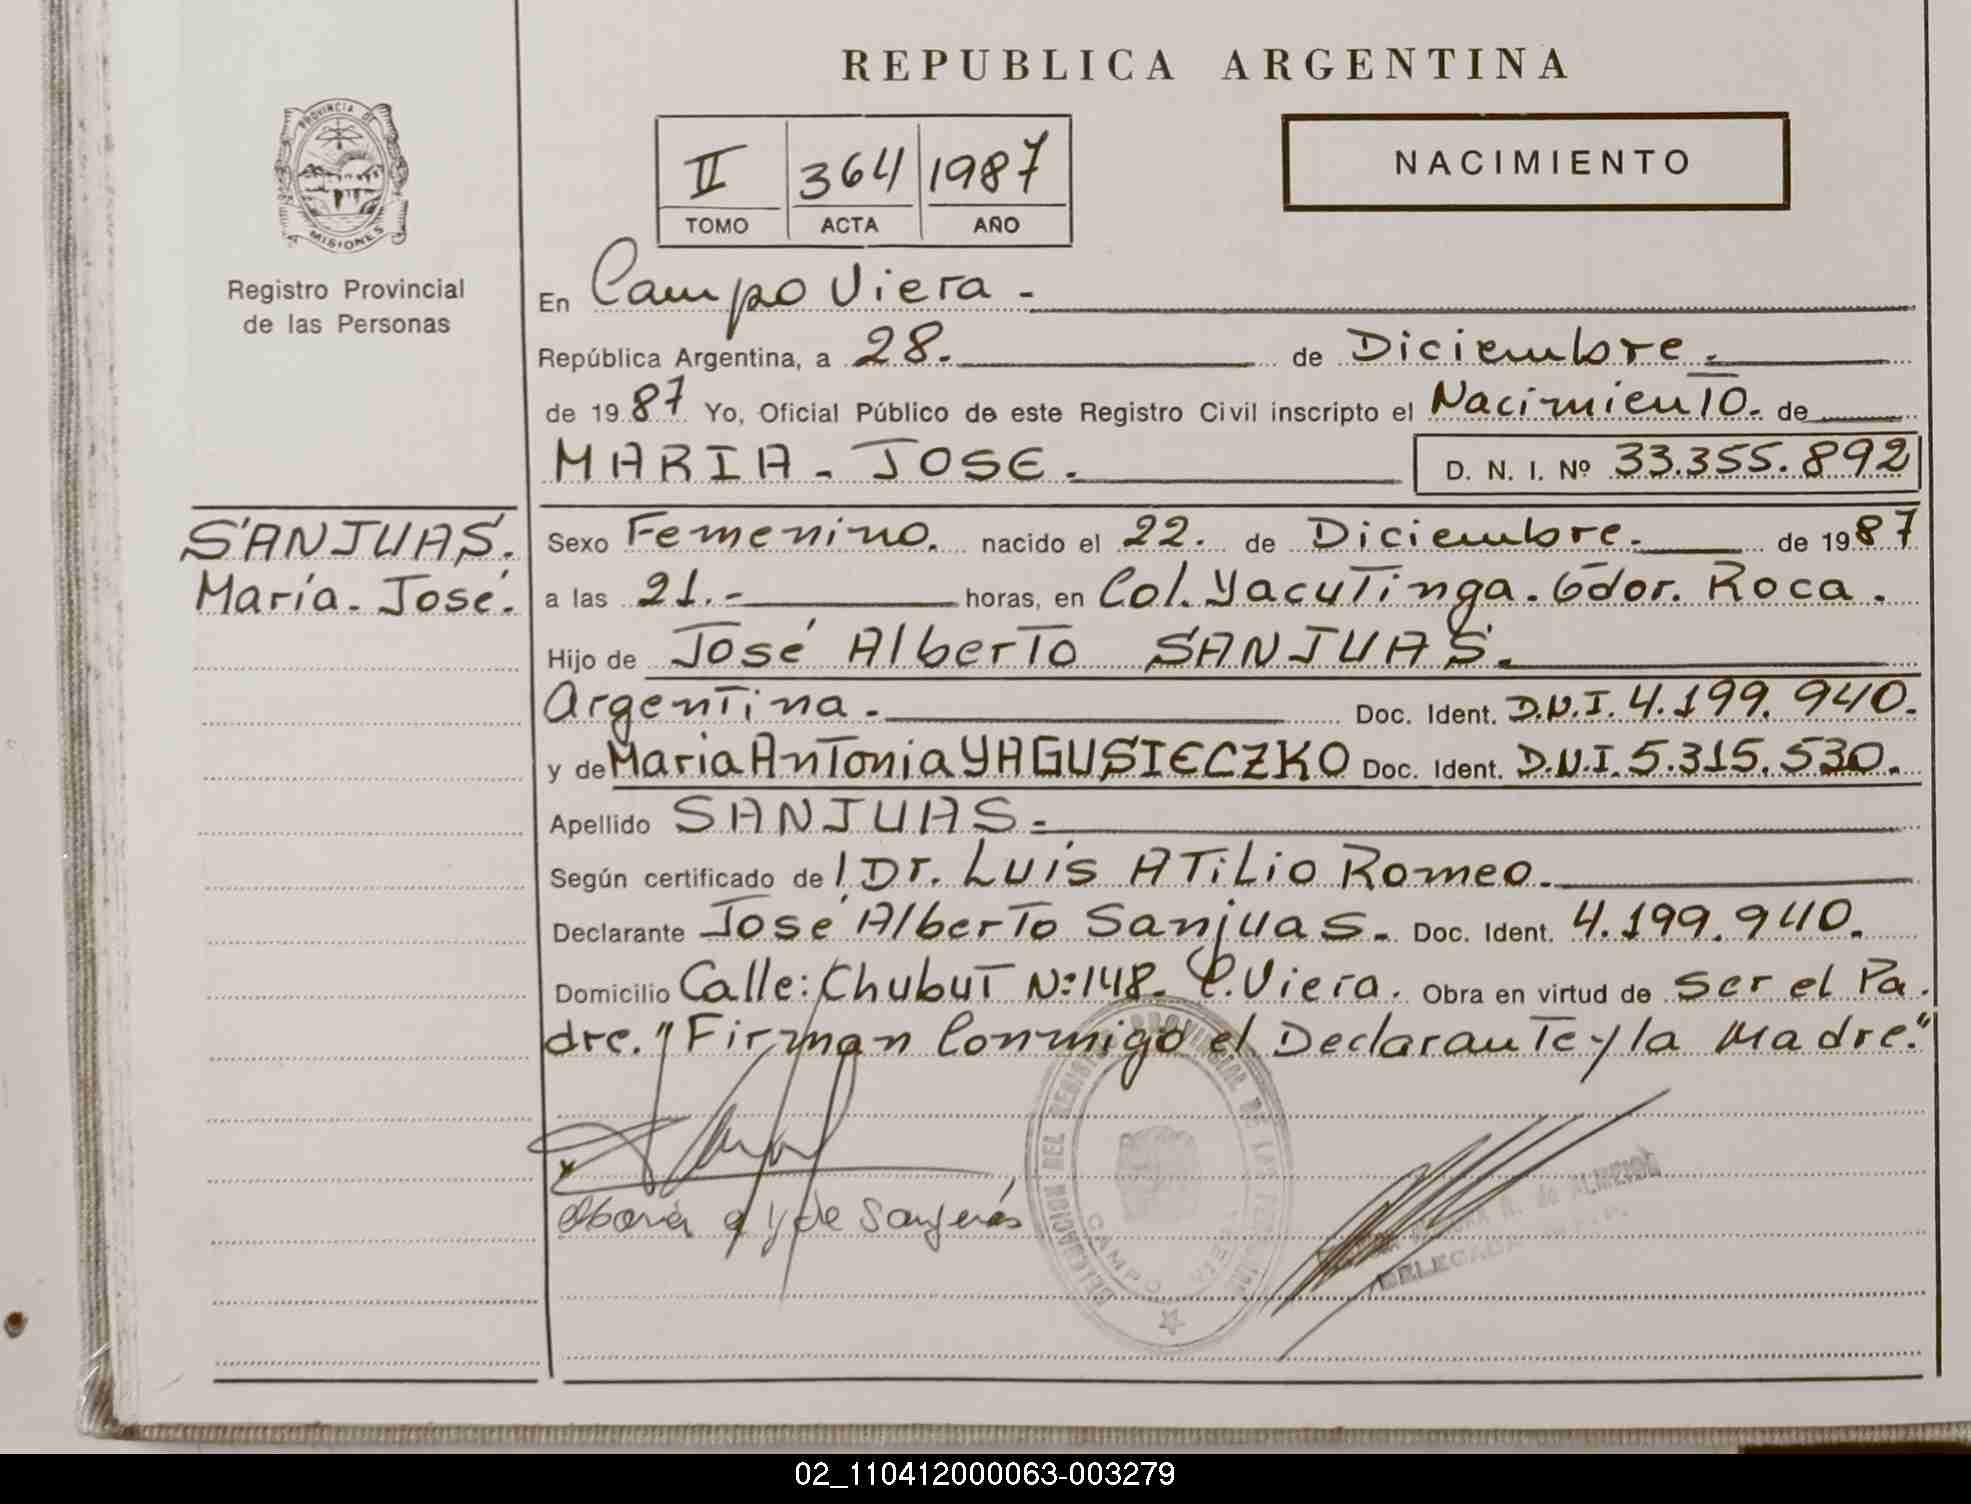 REPUBLICA ARGENTINA
PROVINCIA DE MISIONES
Registro Provincial
de las Personas
II 364 1987
TOMO ACTA AÑO
NACIMIENTO
En Campo Viera.-
República Argentina, a 28. de Diciembre.
de 1987 Yo, Oficial Público de este Registro Civil inscripto el Nacimiento. de
MARIA - JOSE. D. N. I. Nº 33.355.892
SANJUAS.
María - José.
Sexo Femenino. nacido el 22. de Diciembre. de 1987
a las 21.- horas, en Col. Yacutinga. Gdor. Roca.
Hijo de José Alberto SANJUAS.
Argentina. Doc. Ident. D.N.I. 4.199.940.
y de Maria Antonia YAGUSIECZKO Doc. Ident. D.N.I. 5.315.530.
Apellido SANJUAS.-
Según certificado del Dr. Luis Atilio Romeo.
Declarante José Alberto Sanjuas. Doc. Ident. 4.199.940.
Domicilio Calle: Chubut Nº 148. C. Viera. Obra en virtud de ser el Pa.
dre. "Firman Conmigo el Declarante y la Madre."
de Sanjuás
DELEGACION DEL REGISTRO PROVINCIAL DE LAS PERSONAS
CAMPO VIERA
de ALMEIDA
DELEGADA
02_110412000063-003279